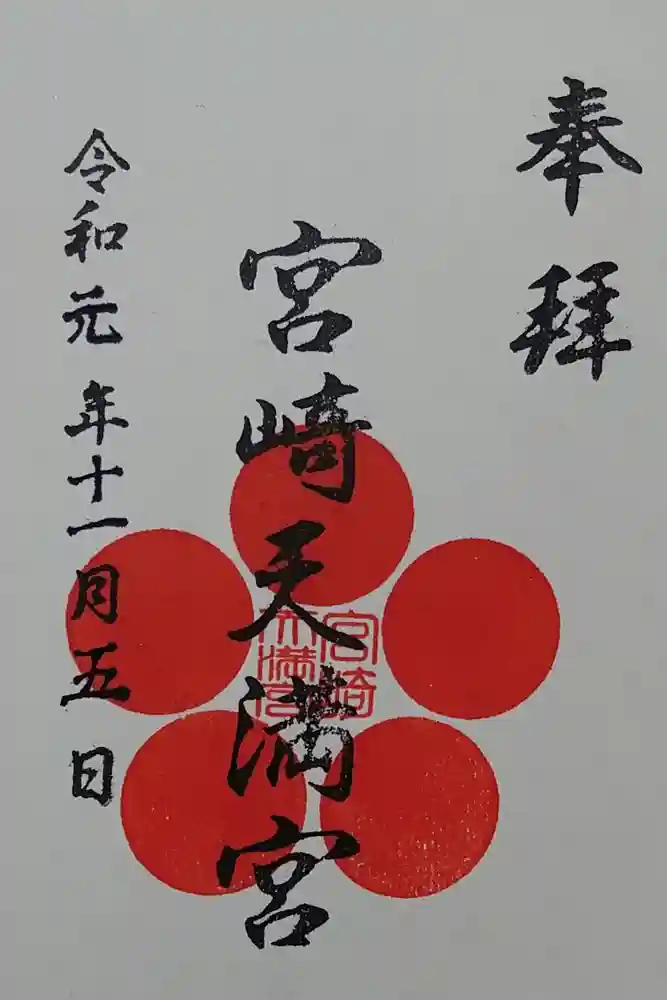 奉拝
宮崎天満宮
宮崎
天満宮
令和元年十一月五日